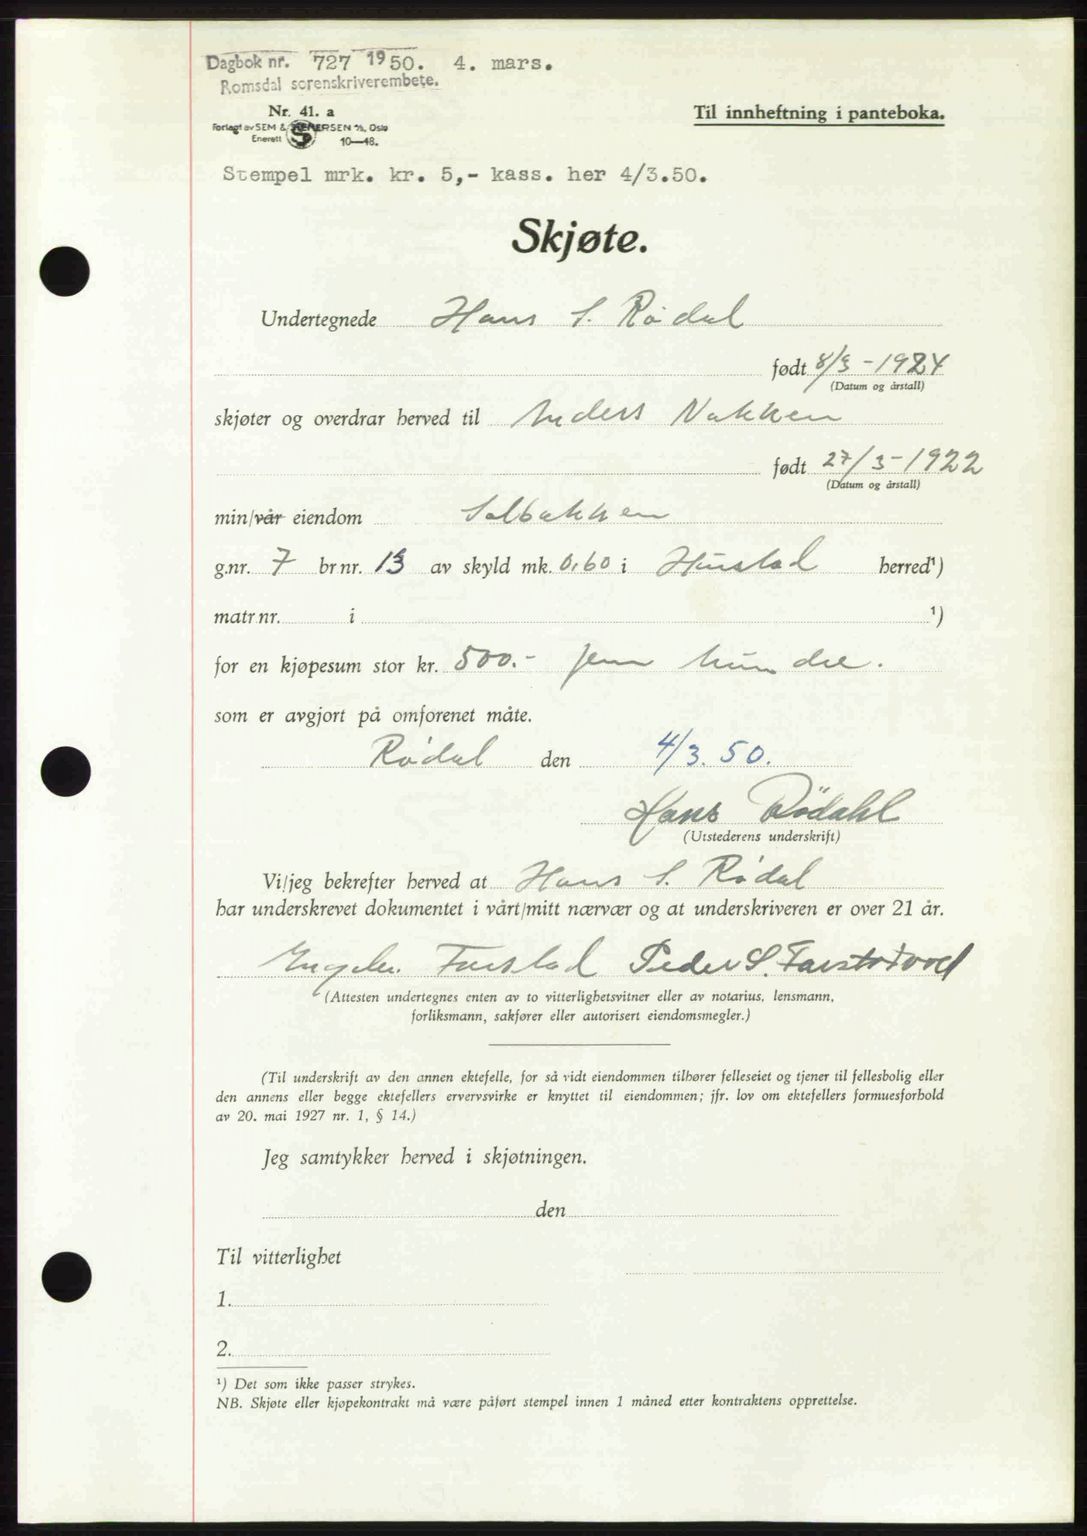 Dagbok nr. 727 1950. 4. mars.
Romsdal sorenskriverembete.
Nr. 41. a
Til innheftning i panteboka.
Forlagt av SEM & STENERSEN A/S, Oslo
Enerett 10—48.
Stempel mrk. kr. 5,- kass. her 4/3.50.
Skjøte.
Undertegnede Hans S. Rødal
født 8/3 - 1924
(Datum og årstall)
skjøter og overdrar herved til Anders Nakken
født 27/3 - 1922
(Datum og årstall)
min/vår eiendom Solbakken
g.nr. 7 br nr. 13 av skyld mk. 0,60 i Hustad herred¹)
matr nr. i ¹)
for en kjøpesum stor kr. 500.- fem hundre.
som er avgjort på omforenet måte.
Rødal den 4/3. 50.
Hans Rødahl
(Utstederens underskrift)
Vi/jeg bekrefter herved at Hans S. Rødal
har underskrevet dokumentet i vårt/mitt nærvær og at underskriveren er over 21 år.
Farstad Peder S.
(Attesten undertegnes enten av to vitterlighetsvitner eller av notarius, lensmann,
forliksmann, sakfører eller autorisert eiendomsmegler.)
(Til underskrift av den annen ektefelle, for så vidt eiendommen tilhører felleseiet og tjener til fellesbolig eller
den annens eller begge ektefellers ervervsvirke er knyttet til eiendommen; jfr. lov om ektefellers formuesforhold
av 20. mai 1927 nr. 1, § 14.)
Jeg samtykker herved i skjøtningen.
den
Til vitterlighet
1.
2.
¹) Det som ikke passer strykes.
NB. Skjøte eller kjøpekontrakt må være påført stempel innen 1 måned etter kontraktens opprettelse.